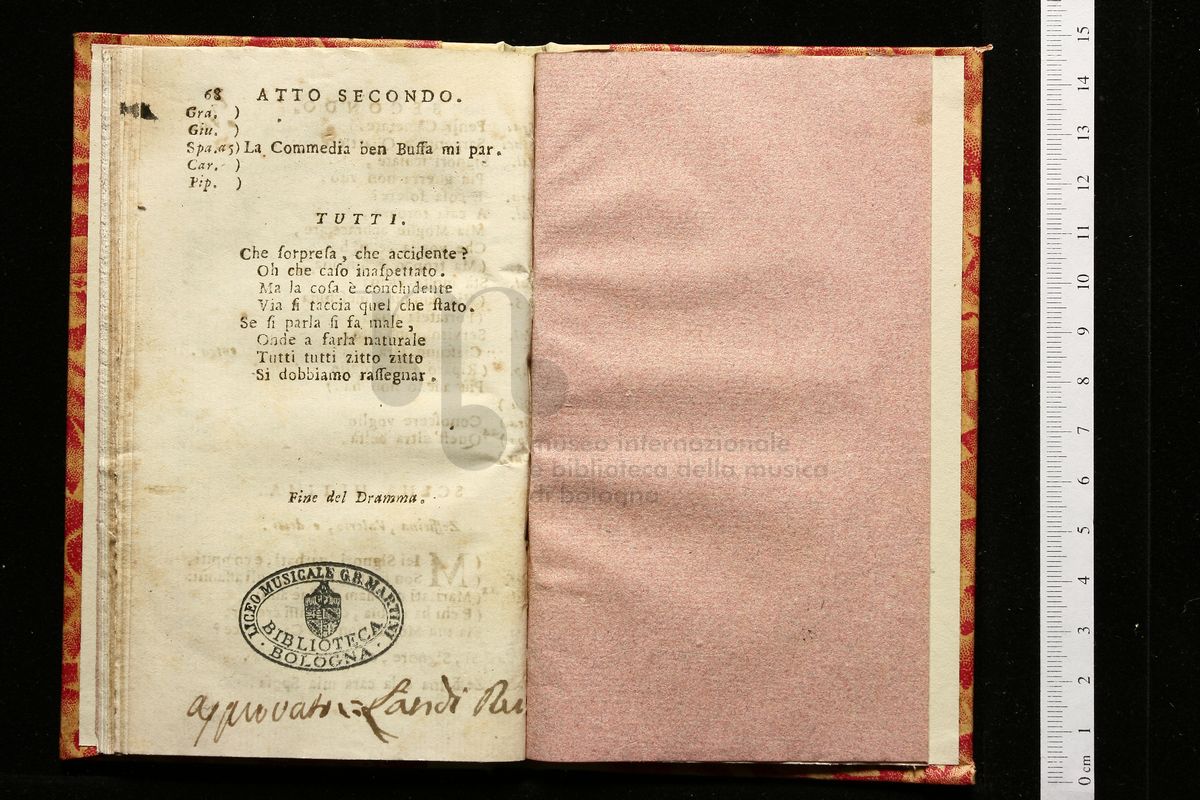 68 ATTO SECONDO.
Gra. )
Giu. )
Spa.a5) La Commedia ben Buſſa mi par.
Car. )
Pip. )
TUTTI.
Che ſorpreſa, che accidente?
Oh che caſo inaſpettato.
Ma la coſa è concludente
Via ſi taccia quel che ſtato.
Se ſi parla ſi fa male,
Onde a farla naturale
Tutti tutti zitto zitto
Si dobbiamo raſſegnar.
Fine del Dramma.
LICEO MUSICALE G.B. MARTINI
BIBLIOTECA
· BOLOGNA ·
approvato Landi
museo internazionale
e biblioteca della musica
di bologna
15
14
13
12
11
10
9
8
7
6
5
4
3
2
1
0 cm